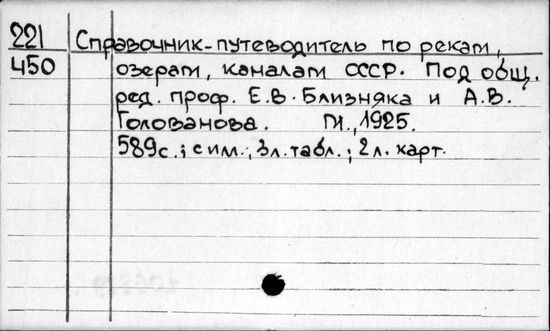 221 Справочник-путеводитель по рекам,
450 озерам, каналам СССР. Под общ.
ред. проф. Е.В. Близняка и А.В.
Голованова. М., 1925.
589 с.; с им.; 3 л. табл.; 2 л. карт.